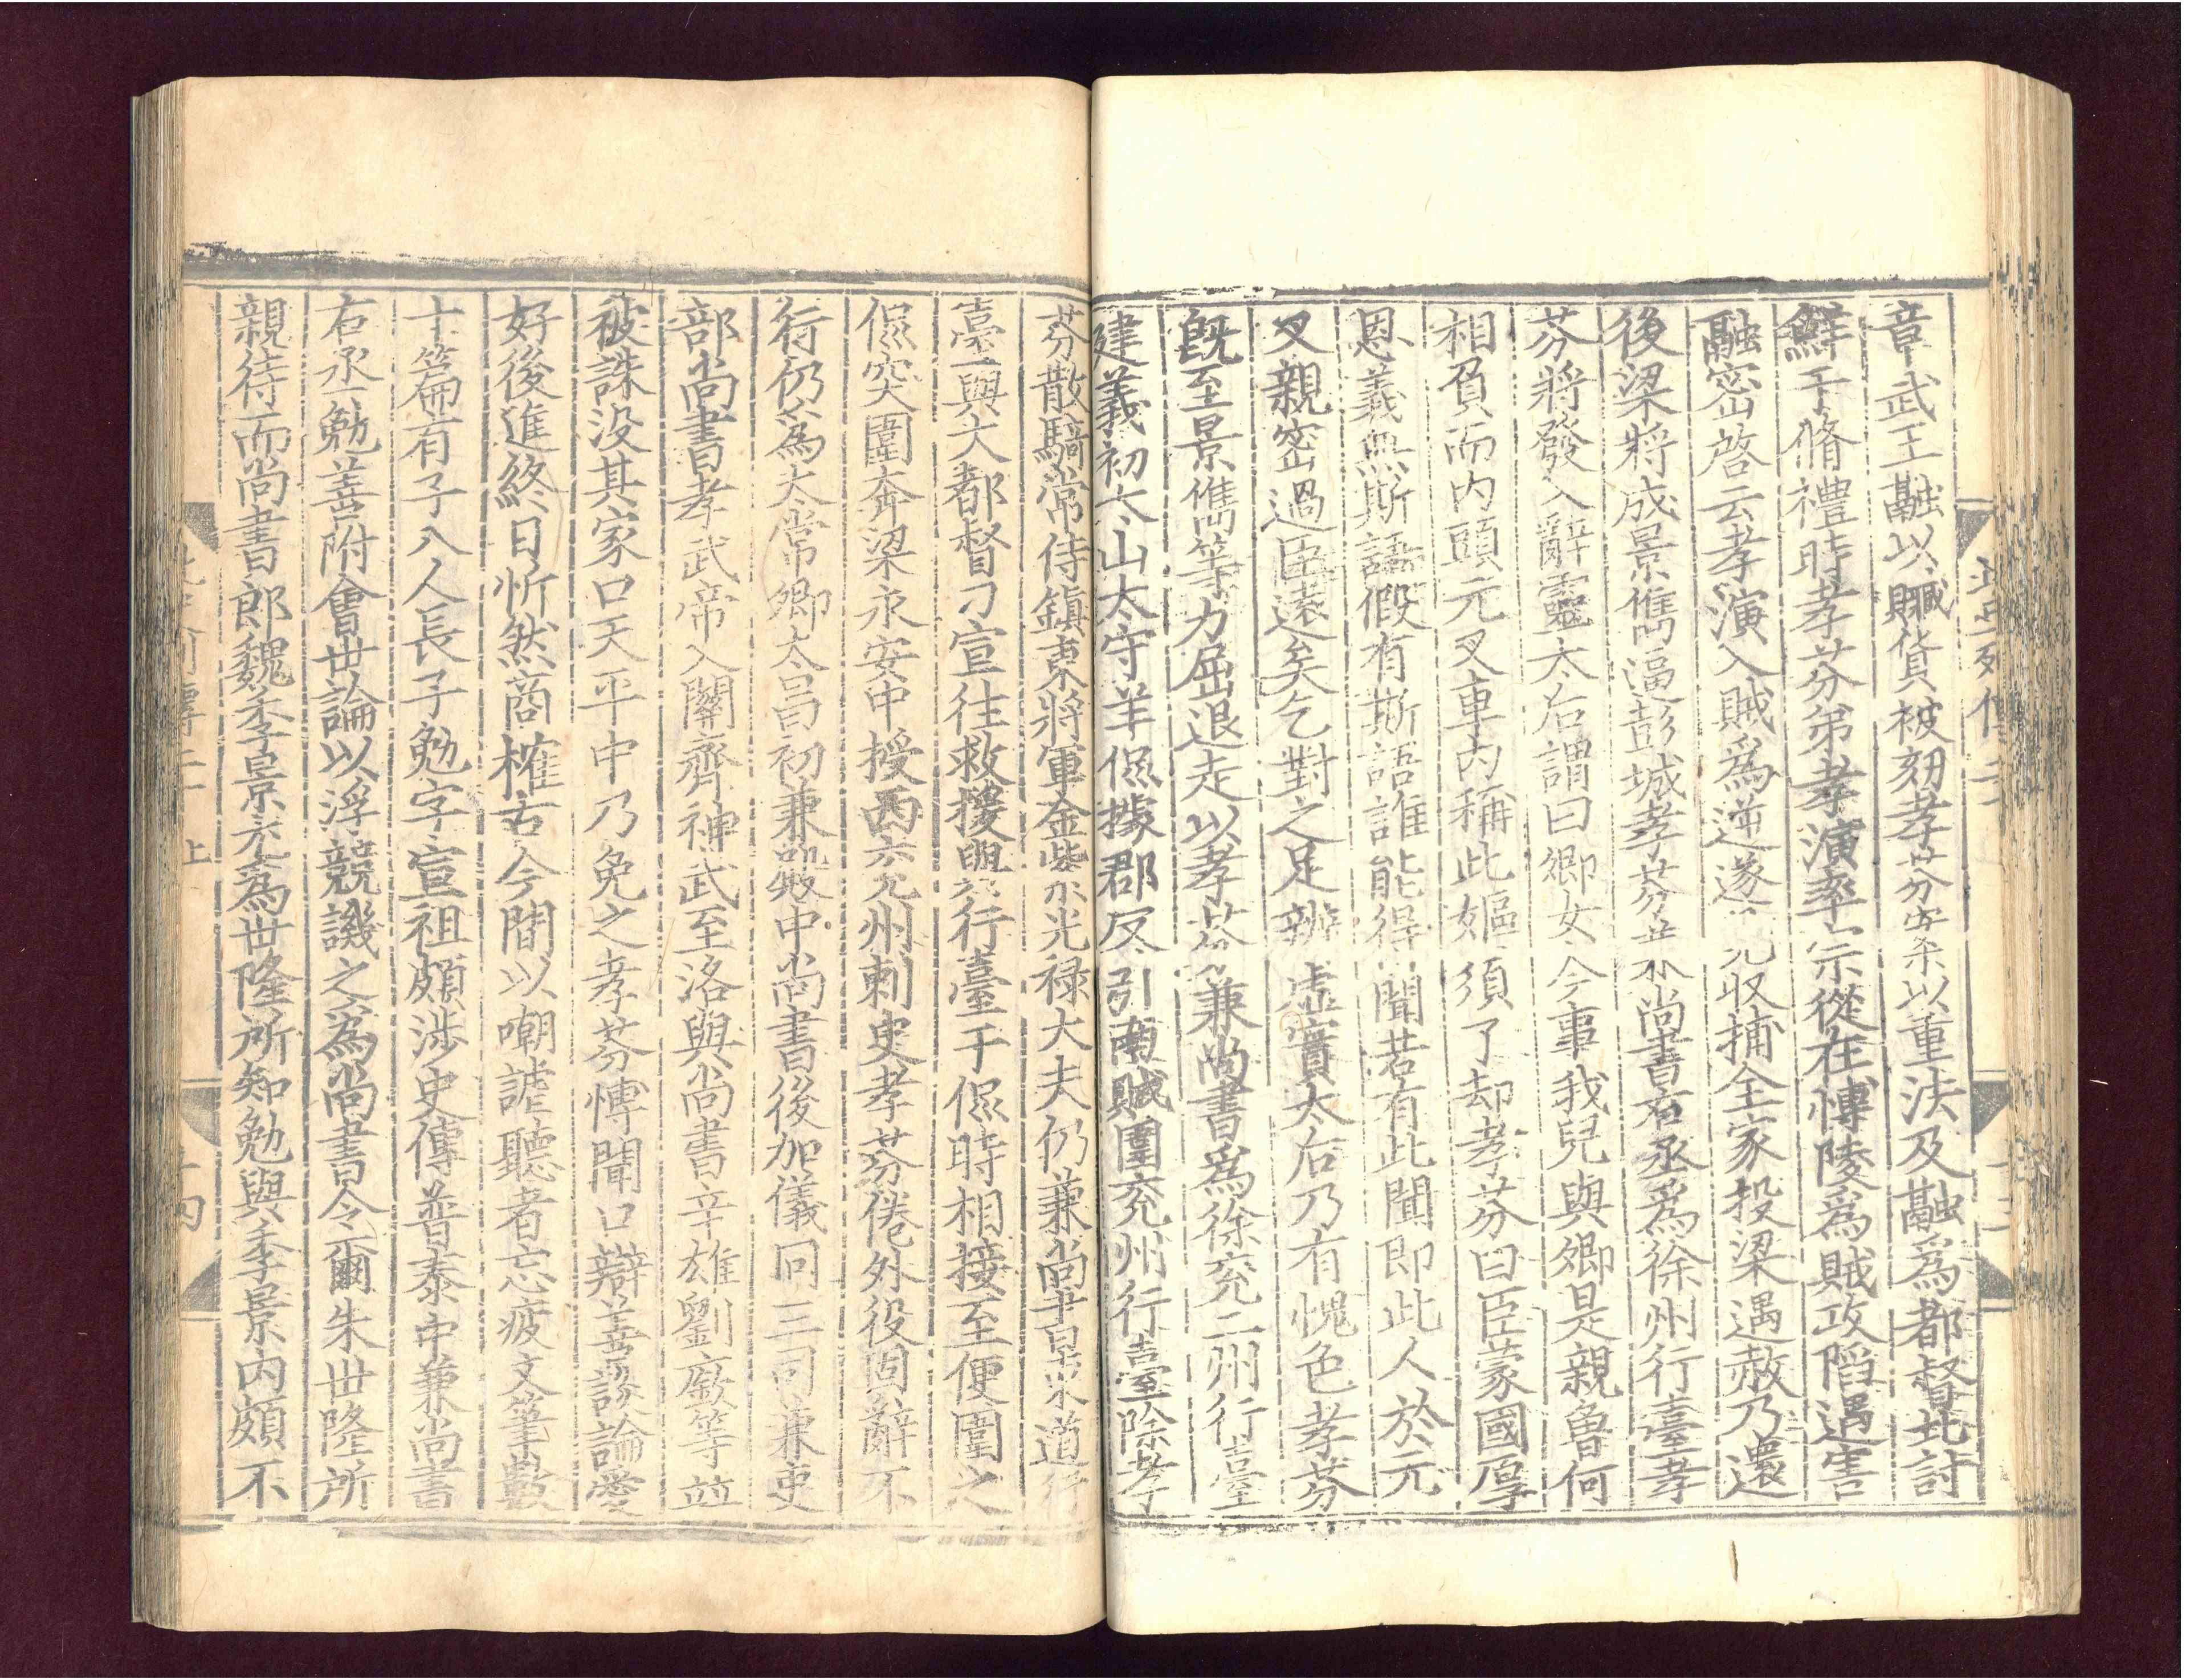 章武王融以贓貨被劾孝芬案以重法及融爲都督北討
鮮于脩禮時孝芬弟孝演率宗從在慱陵爲賊攻陷遇害
融密啓云孝演入賊爲逆遂見收捕全家投梁遇赦乃還
後梁將成景儁逼彭城孝芬兼尚書右丞爲徐州行臺孝
芬將發入辭靈太后謂曰卿女今事我兒與卿是親曾何
相負而内頭元叉車内稱此嫗須了却孝芬曰臣蒙國厚
恩義無斯語假有斯語誰能得聞若有此聞即此人於元
叉親密過臣遠矣乞對之足辨虛實太后乃有愧色孝芬
旣至景儁等力屈退走以孝芬兼尚書爲徐兖二州行臺
建義初太山太守羊侃據郡反引南賊圍兖州行臺除孝
芬散騎常侍鎮東將軍金紫光禄大夫仍兼尚書東道行
臺與大都督刁宣往救援與行臺于侃時相接至便圍之
侃突圍奔梁永安中授西兖州刺史孝芬倦外役固辭不
行仍爲太常卿太昌初兼殿中尚書後加儀同三司兼吏
部尚書孝武帝入關齊神武至洛與尚書辛雄劉廞等並
被誅没其家口天平中乃免之孝芬愽聞口辯善談論愛
好後進終日忻然商榷古今間以嘲謔聽者忘疲文筆數
十篇有子八人長子勉字宣祖頗涉史傳普泰中兼尚書
右丞勉善附會世論以浮競譏之爲尚書令尒朱世隆所
親待而尚書郎魏季景尤爲世隆所知勉與季景内頗不